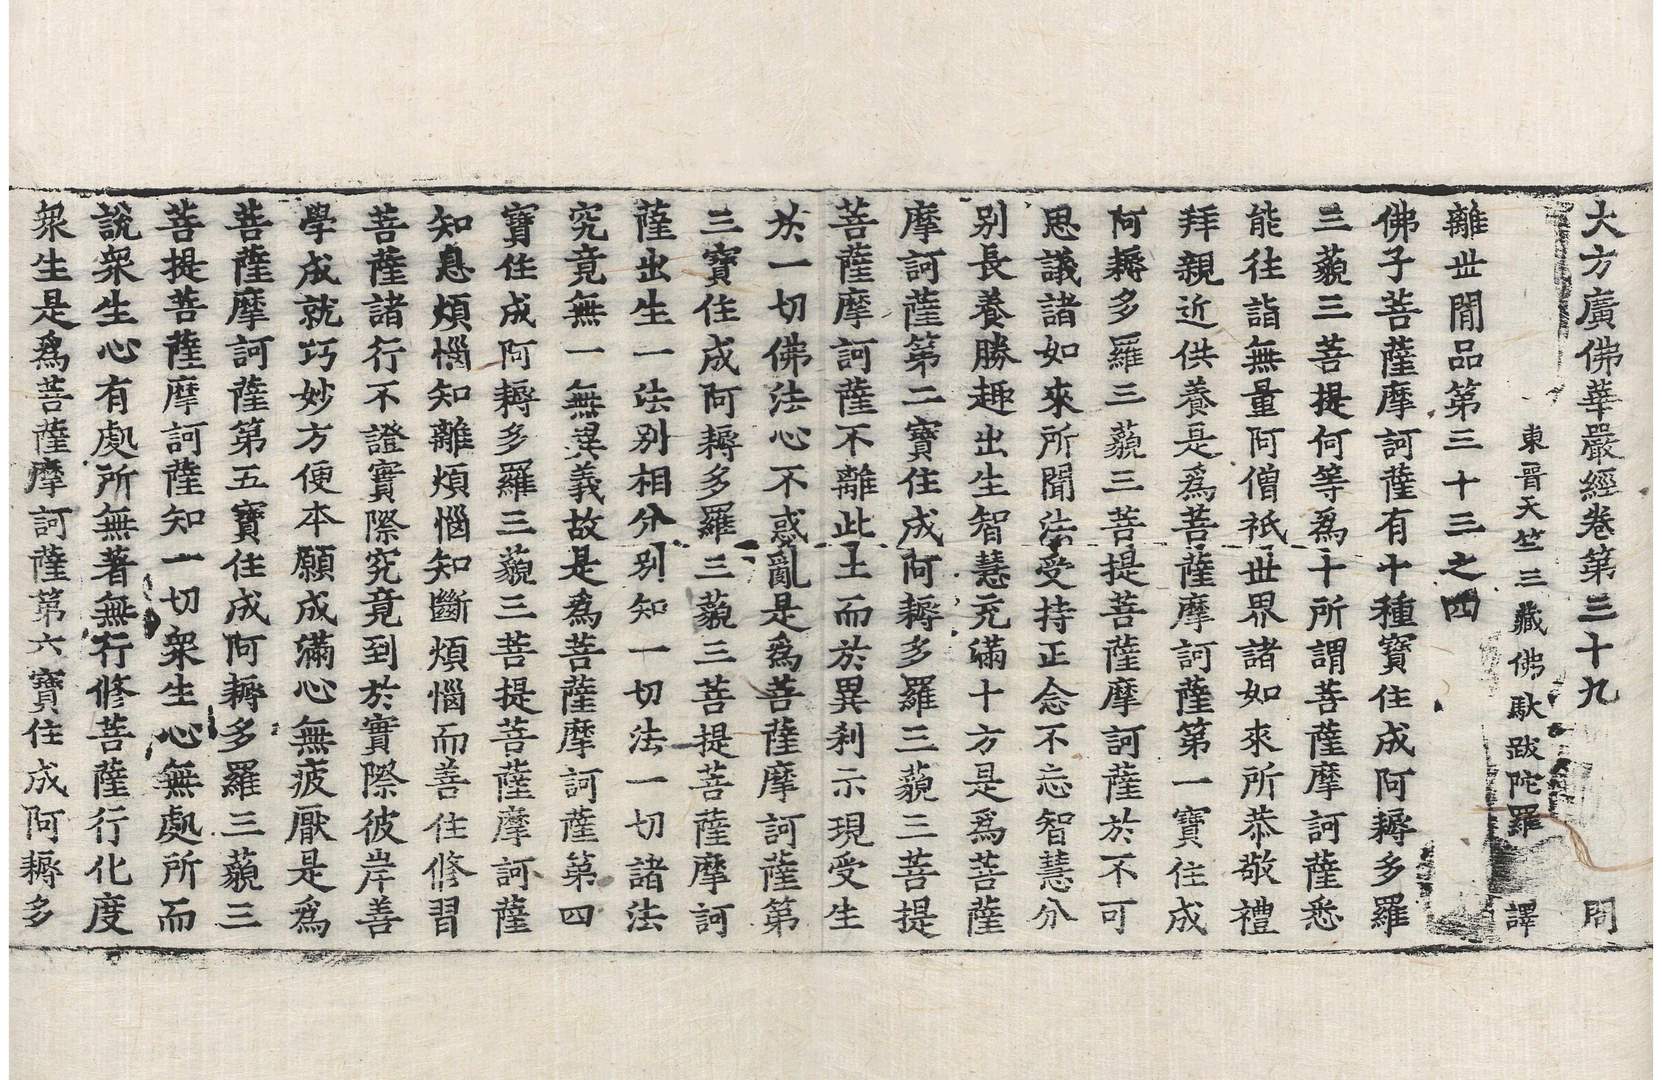 大方廣佛華嚴經卷第三十九 問
東晉天竺三藏佛馱跋陀羅 譯
離世間品第三十三之四
佛子菩薩摩訶薩有十種寶住成阿耨多羅
三藐三菩提何等爲十所謂菩薩摩訶薩悉
能往詣無量阿僧祇世界諸如來所恭敬禮
拜親近供養是爲菩薩摩訶薩第一寶住成
阿耨多羅三藐三菩提菩薩摩訶薩於不可
思議諸如來所聞法受持正念不忘智慧分
別長養勝趣出生智慧充滿十方是爲菩薩
摩訶薩第二寶住成阿耨多羅三藐三菩提
菩薩摩訶薩不離此土而於異刹示現受生
於一切佛法心不惑亂是爲菩薩摩訶薩第
三寶住成阿耨多羅三藐三菩提菩薩摩訶
薩出生一法別相分別知一切法一切諸法
究竟無一無異義故是爲菩薩摩訶薩第四
寶住成阿耨多羅三藐三菩提菩薩摩訶薩
知息煩惱知離煩惱知斷煩惱而善住修習
菩薩諸行不證實際究竟到於實際彼岸善
學成就巧妙方便本願成滿心無疲厭是爲
菩薩摩訶薩第五寶住成阿耨多羅三藐三
菩提菩薩摩訶薩知一切衆生心無處所而
說衆生心有處所無著無行修菩薩行化度
衆生是爲菩薩摩訶薩第六寶住成阿耨多